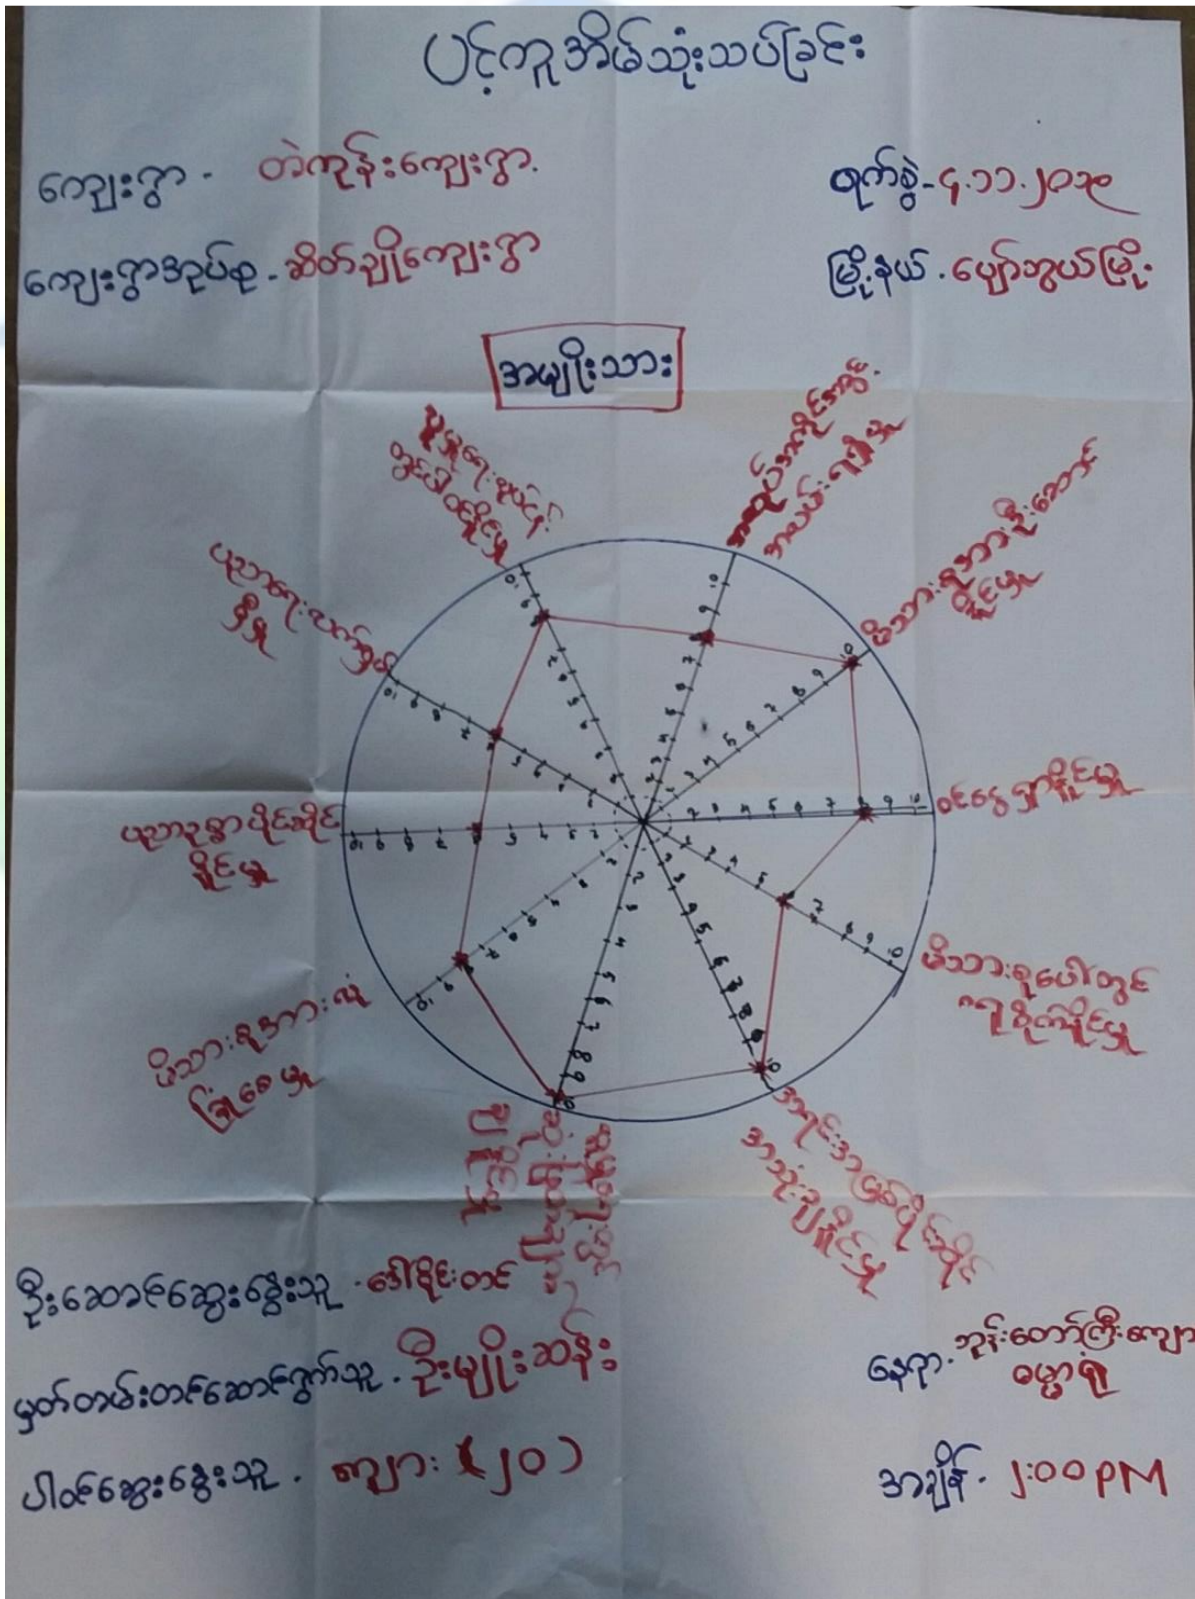 ပင့်ကူအိမ်သုံးသပ်ခြင်း
ကျေးရွာ - တဲကုန်းကျေးရွာ.
ရက်စွဲ - ၄.၁၁.၂၀၁၉
ကျေးရွာအုပ်စု - ဆိတ်ချိုကျေးရွာ
မြို့နယ် - ပျော်ဘွယ်မြို့.
အမျိုးသား
အလုပ်အကိုင်အခွင့်
အလမ်းရရှိမှု
မိသားစုအားဦးဆောင်
နိုင်မှု
ဝင်ငွေရှာနိုင်မှု
မိသားစုပေါ်တွင်
ဂရုစိုက်နိုင်မှု
အရင်းအမြစ်ပိုင်ဆိုင်
အသုံးချနိုင်မှု
မိသားစုအားလုံ
ခြုံစေမှု
ပညာဥစ္စာပိုင်ဆိုင်
နိုင်မှု
ပညာရေးလက်လှမ်းမှီ
မှီမှု
လူမှုရေးလုပ်ငန်း
တွင်ပါဝင်နိုင်မှု
ဦးဆောင်ဆွေးနွေးသူ - ဒေါ်ခိုင်းတင်
မှတ်တမ်းတင်ဆောင်ရွက်သူ - ဦးမျိုးဆန်း
ပါဝင်ဆွေးနွေးသူ - ကျား (၂၀)
နေရာ - ဘုန်းတော်ကြီးကျောင်း
ဓမ္မာရုံ
အချိန် - ၂:၀၀ PM